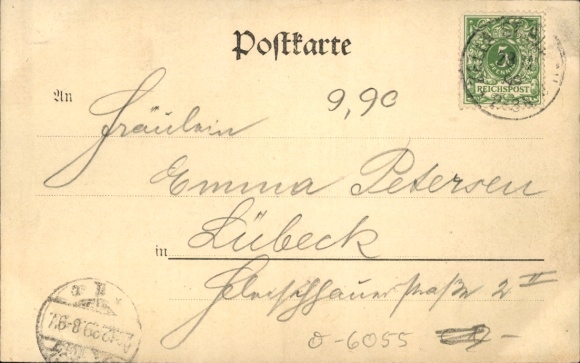 Postkarte
5
REICHSPOST
An
9,90
Fräulein
Emma Petersen
in Lübeck
Fleischhauerstraße 2 II
D-6055